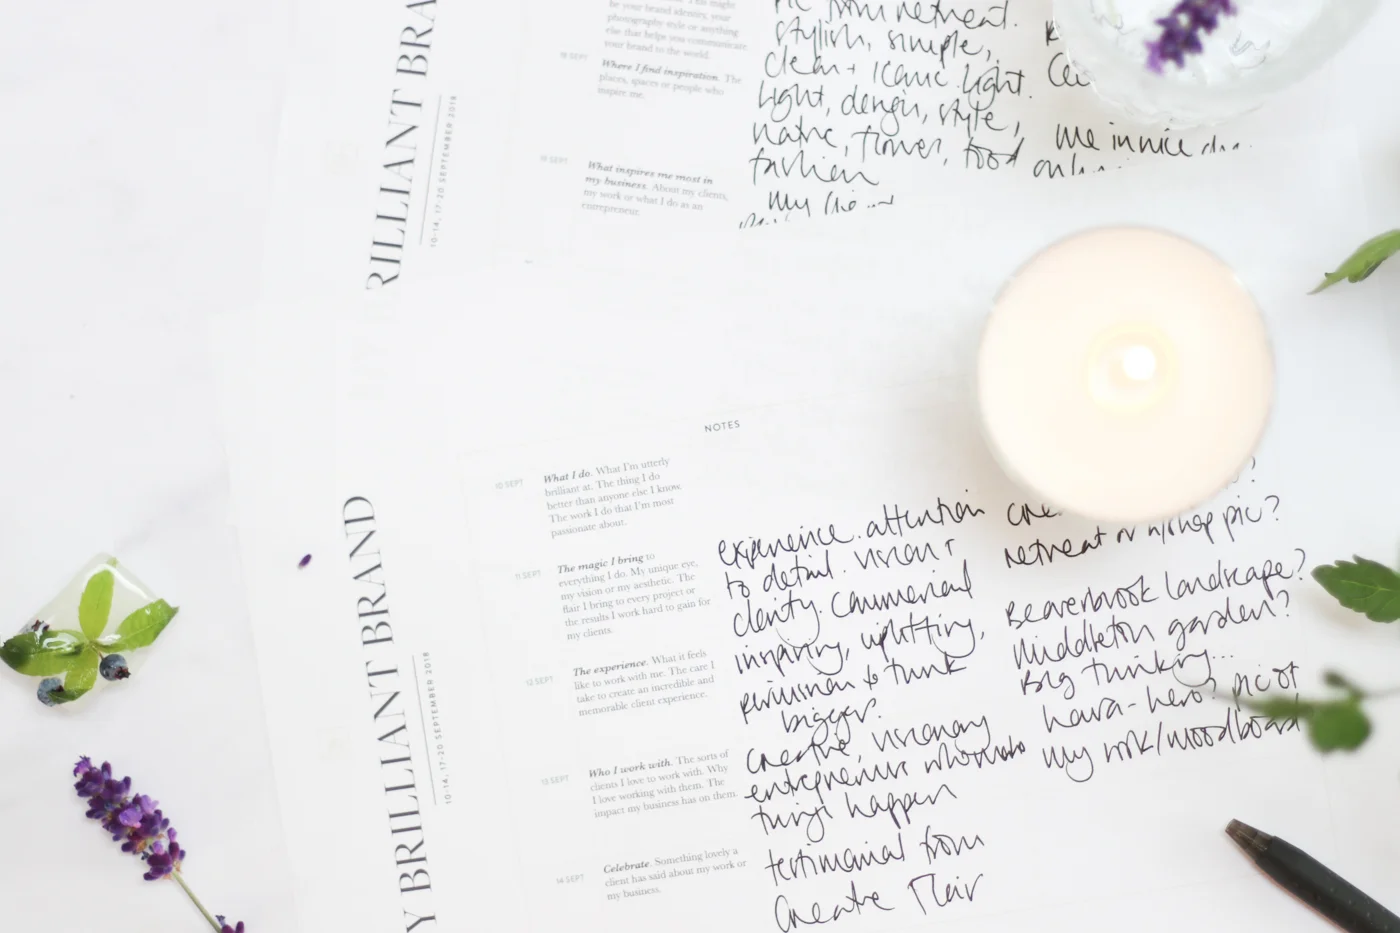 RILLIANT BRA
10-14, 17-20 SEPTEMBER 2018
be your brand identity, your
photography style or anything
else that helps you communicate
your brand to the world.
18 SEPT
Where I find inspiration. The
places, spaces or people who
inspire me.
19 SEPT
What inspires me most in
my business. About my clients,
my work or what I do as an
entrepreneur.
pic from retreat.
stylish, simple,
clean + iconic. light.
light, design, style,
nature, flowers, food
fashion
my
me in nice
NOTES
Y BRILLIANT BRAND
10-14, 17-20 SEPTEMBER 2018
10 SEPT
What I do. What I'm utterly
brilliant at. The thing I do
better than anyone else I know.
The work I do that I'm most
passionate about.
11 SEPT
The magic I bring to
everything I do. My unique eye,
my vision or my aesthetic. The
flair I bring to every project or
the results I work hard to gain for
my clients.
12 SEPT
The experience. What it feels
like to work with me. The care I
take to create an incredible and
memorable client experience.
13 SEPT
Who I work with. The sorts of
clients I love to work with. Why
I love working with them. The
impact my business has on them.
14 SEPT
Celebrate. Something lovely a
client has said about my work or
my business.
experience. attention
to detail. vision +
clarity. commercial
inspiring, uplifting,
permission to think
bigger.
creative, visionary
entrepreneurs who make
things happen
testimonial from
Creative Flair
retreat or w/shop pic?
Beaverbrook landscape?
Middleton garden?
Big thinking...
hero? pic of
my work/moodboard